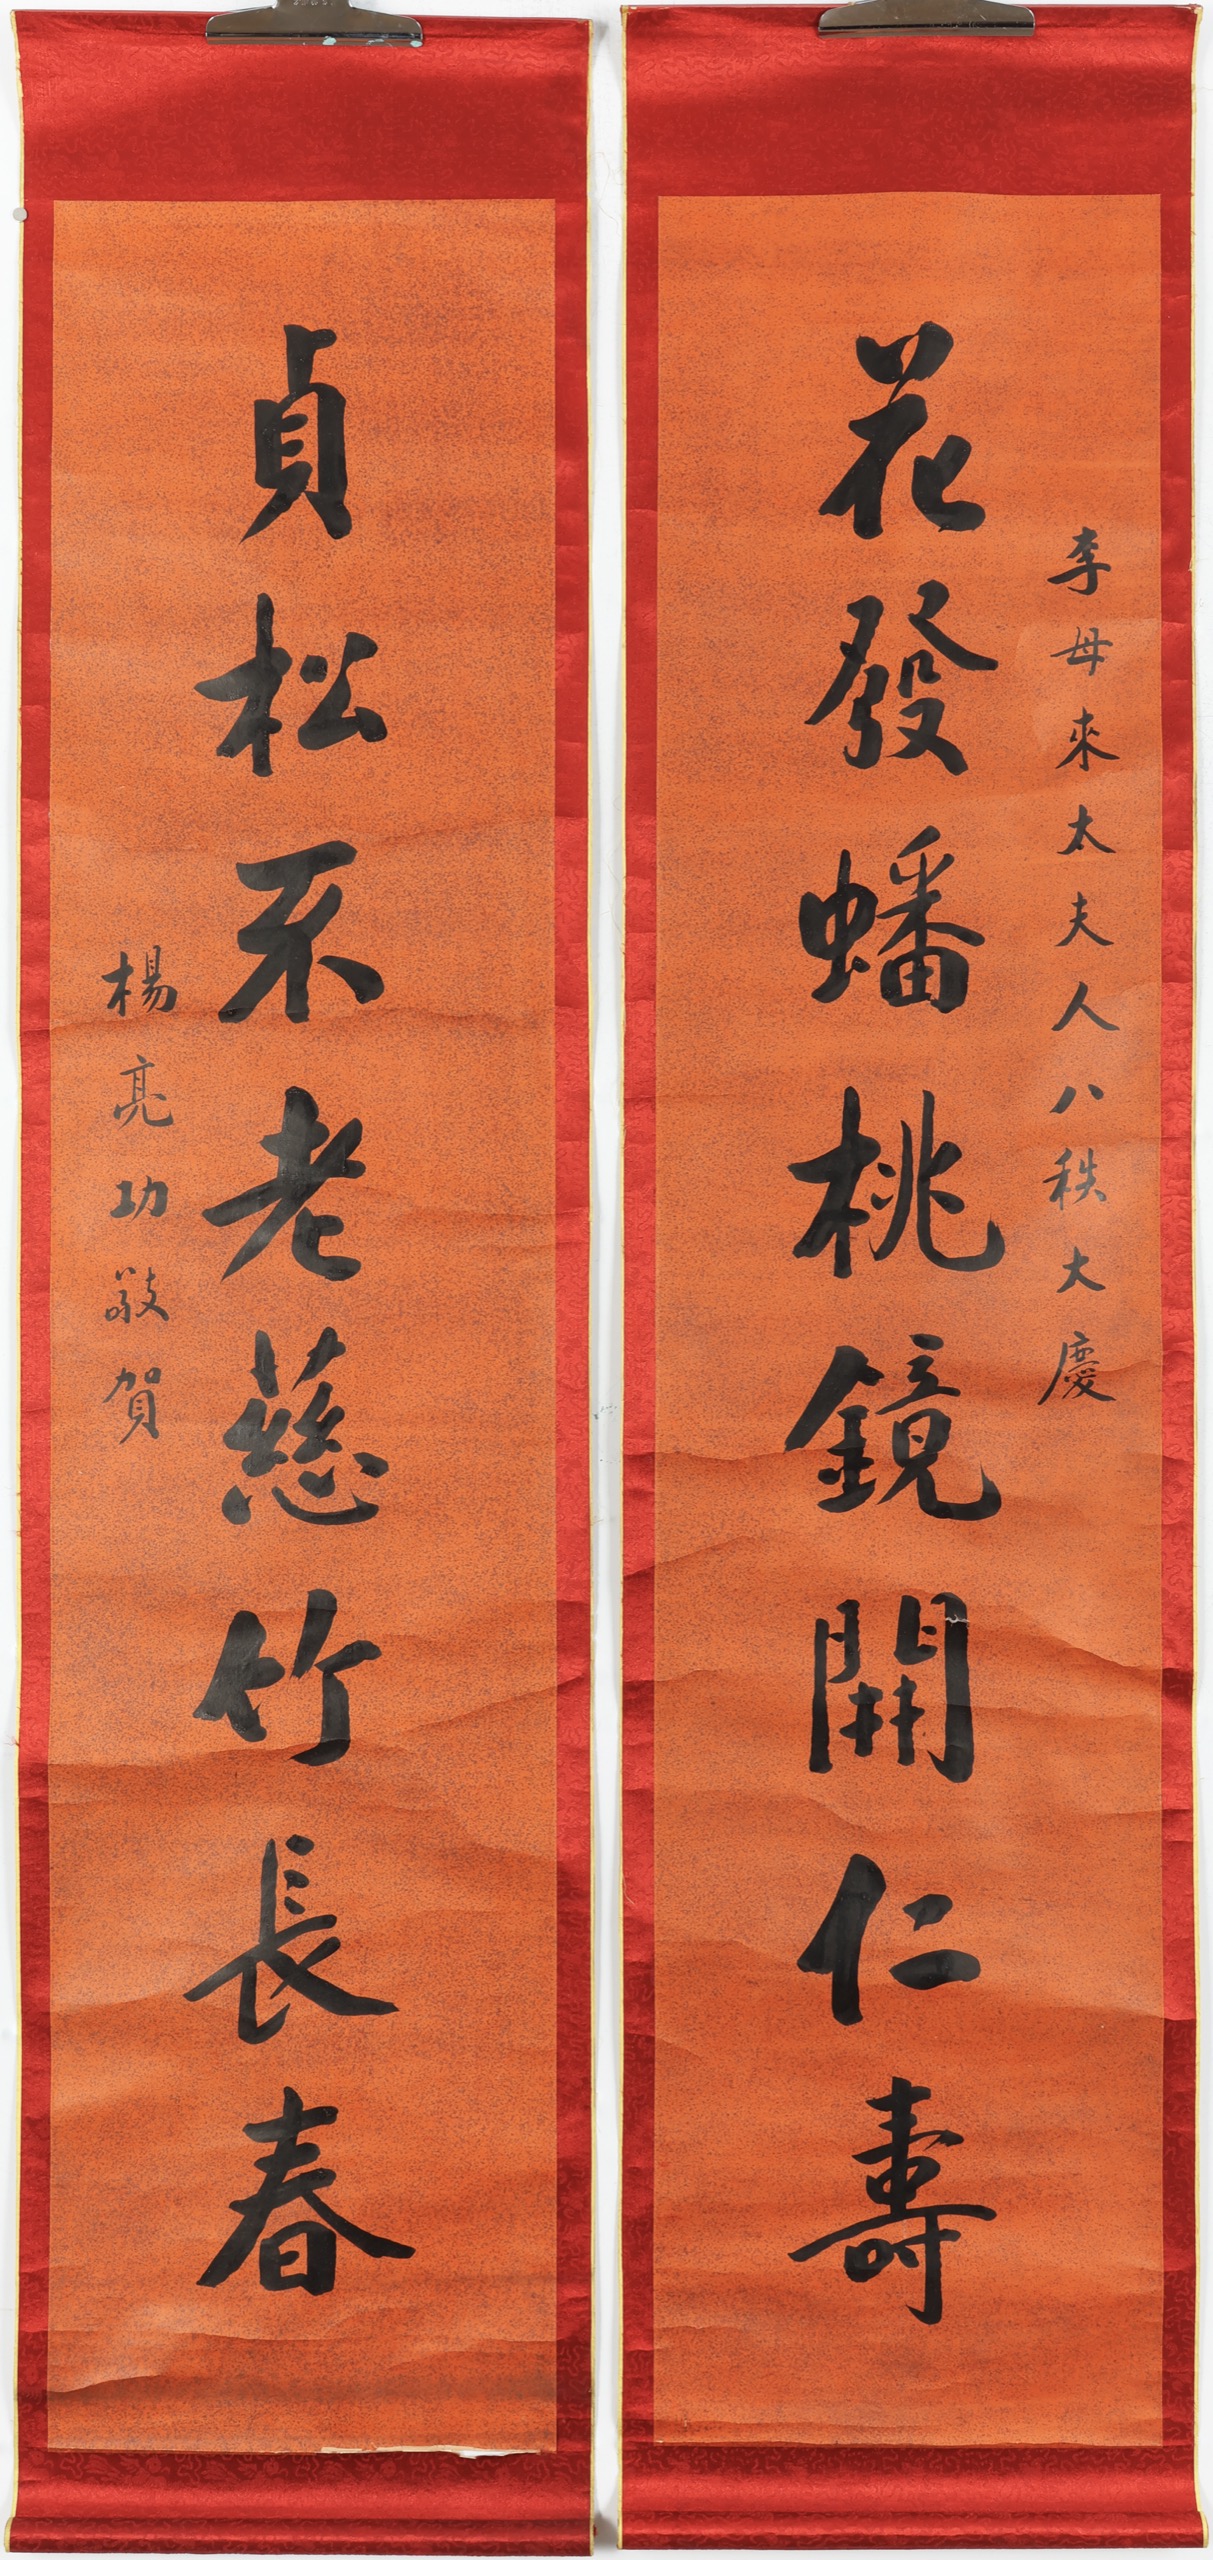 李母來太夫人八秩大慶
花發蟠桃鏡開仁壽
貞松不老慈竹長春
楊亮功敬賀